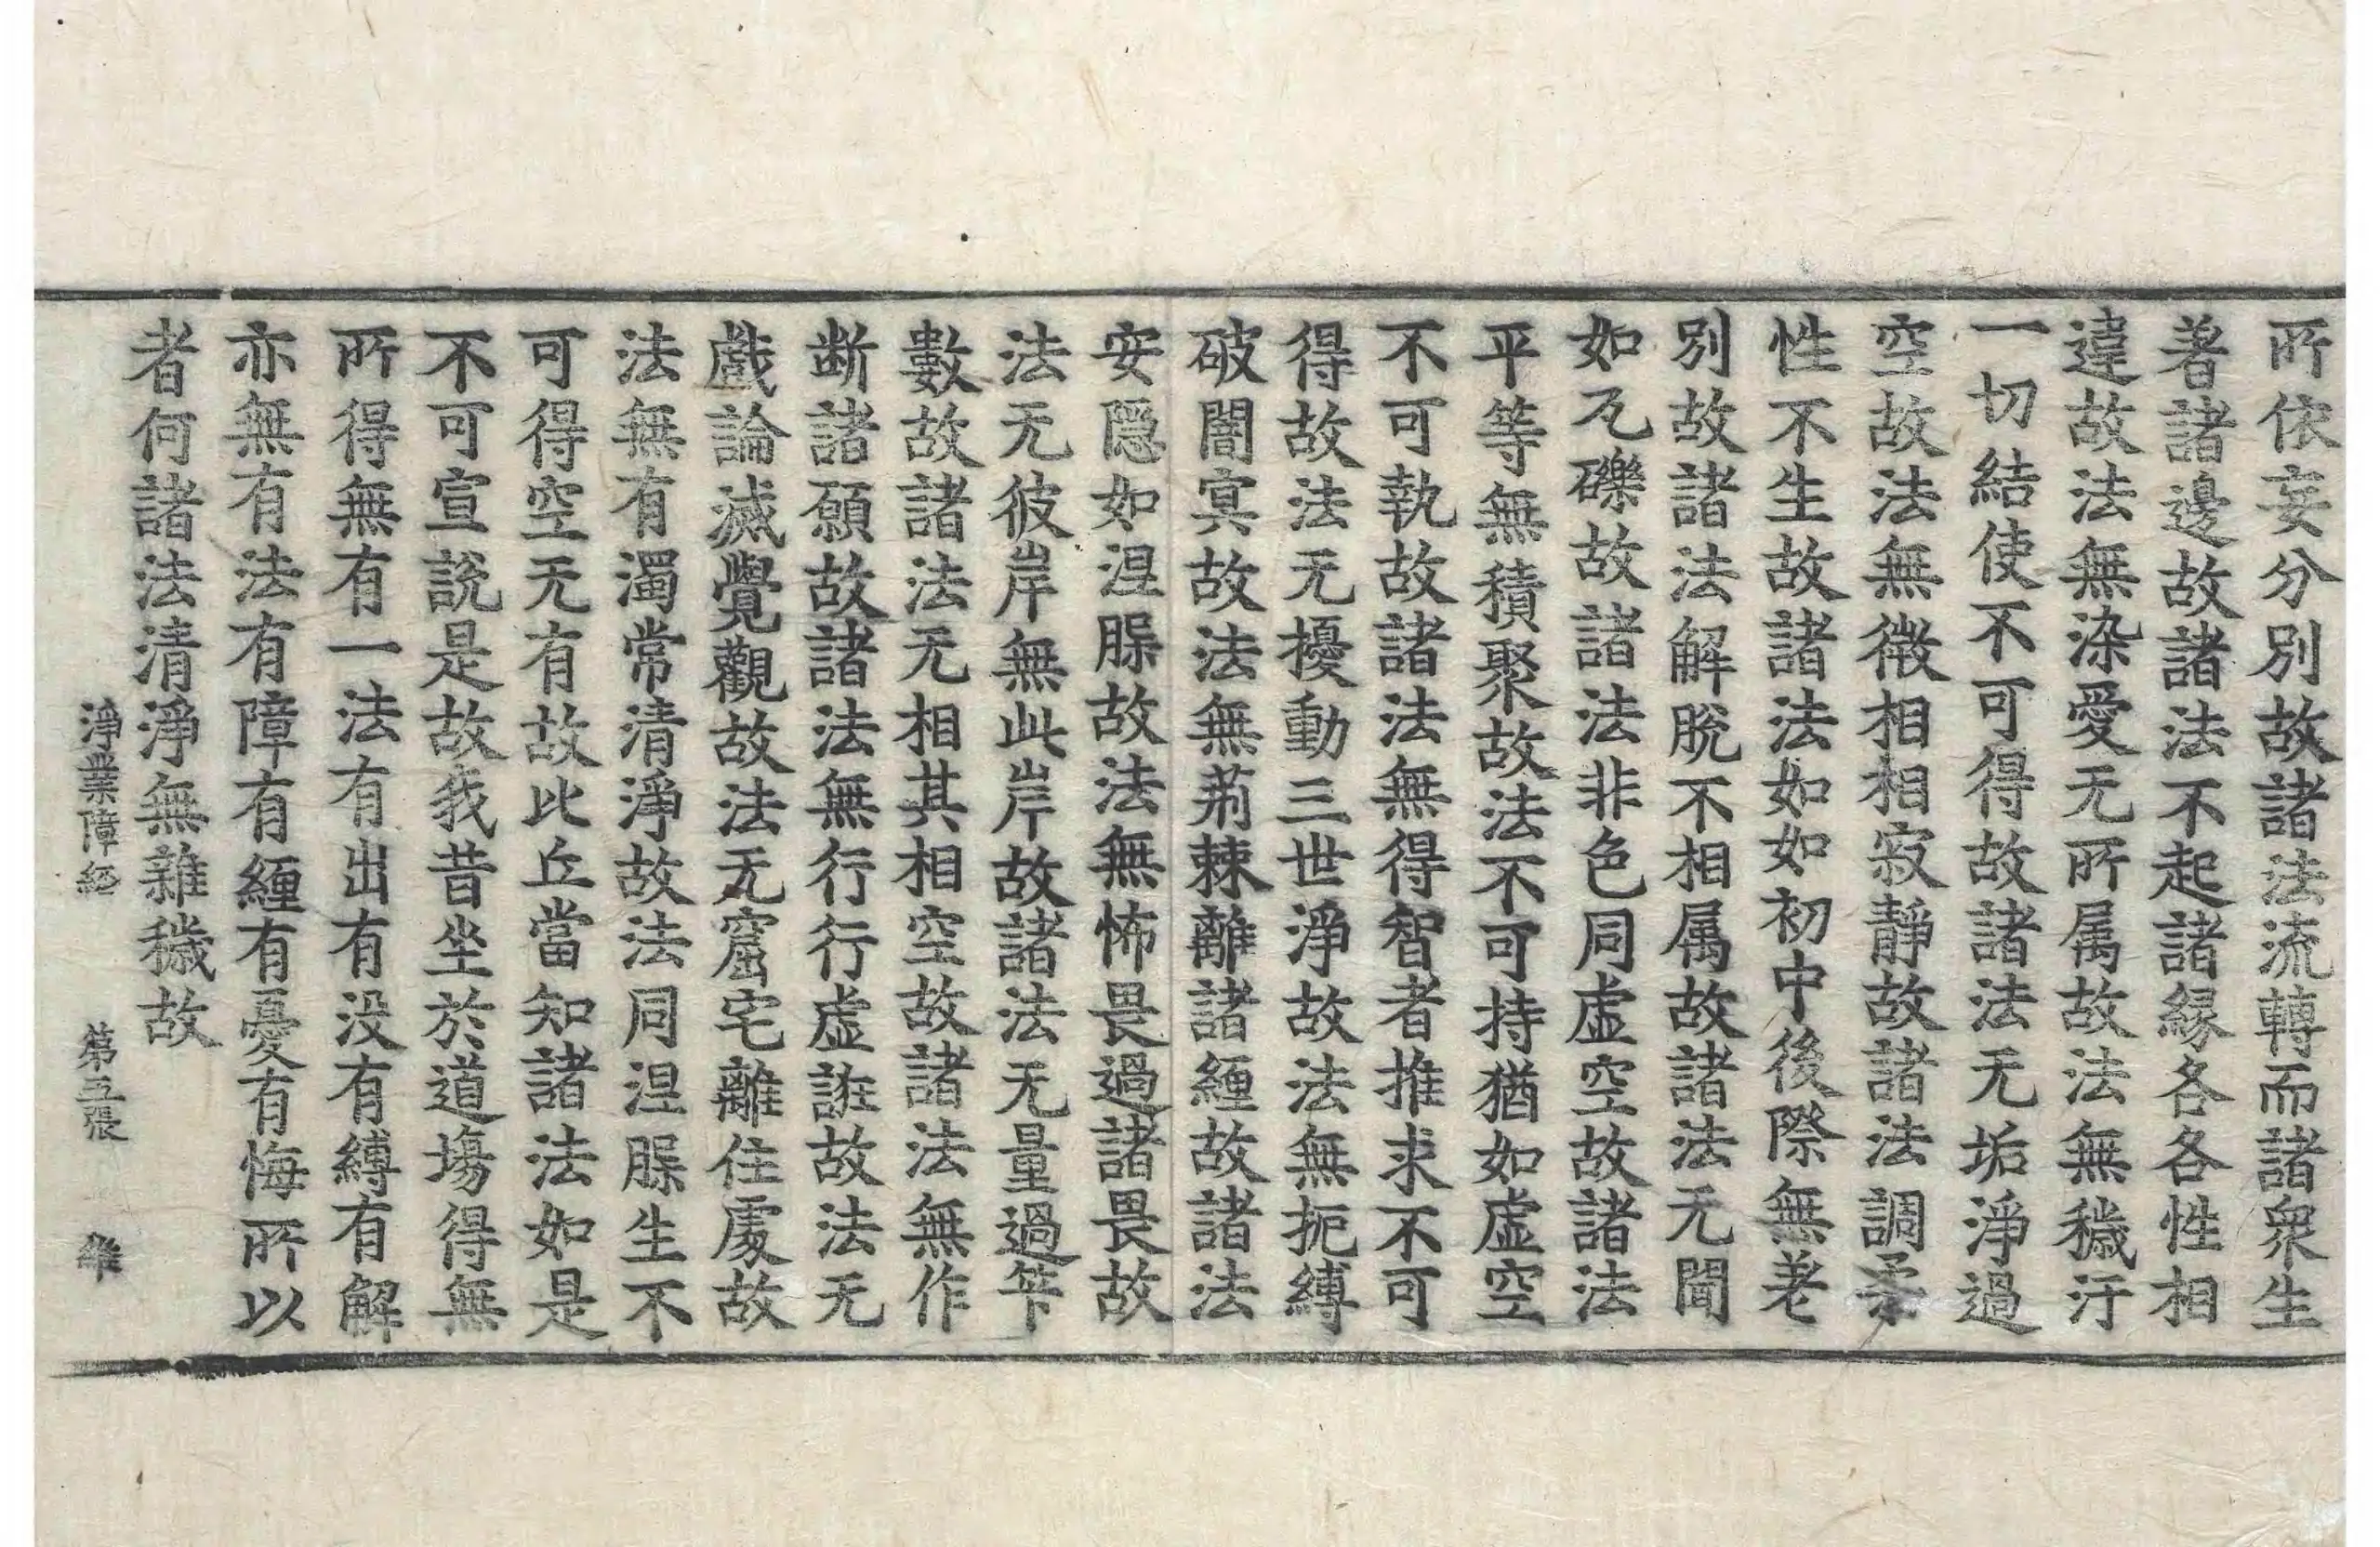 所依妄分別故諸法流轉而諸衆生
著諸邊故諸法不起諸緣各各性相
違故法無染愛无所属故法無穢汙
一切結使不可得故諸法无垢淨過
空故法無徴相相寂靜故諸法調柔
性不生故諸法如如初中後際無差
別故諸法解脫不相属故諸法无閡
如瓦礫故諸法非色同虛空故諸法
平等無積聚故法不可持猶如虛空
不可執故諸法無得智者推求不可
得故法无擾動三世淨故法無扼縛
破闇冥故法無荊棘離諸纏故諸法
安隱如涅槃故法無怖畏過諸畏故
法无彼岸無此岸故諸法无量過筭
數故諸法无相其相空故諸法無作
断諸願故諸法無行行虛誑故法无
戲論滅覺觀故法无窟宅離住處故
法無有濁常清淨故法同涅槃生不
可得空无有故比丘當知諸法如是
不可宣說是故我昔坐於道場得無
所得無有一法有出有没有縛有解
亦無有法有障有纏有憂有悔所以
者何諸法清淨無雜穢故
淨業障經 第五張